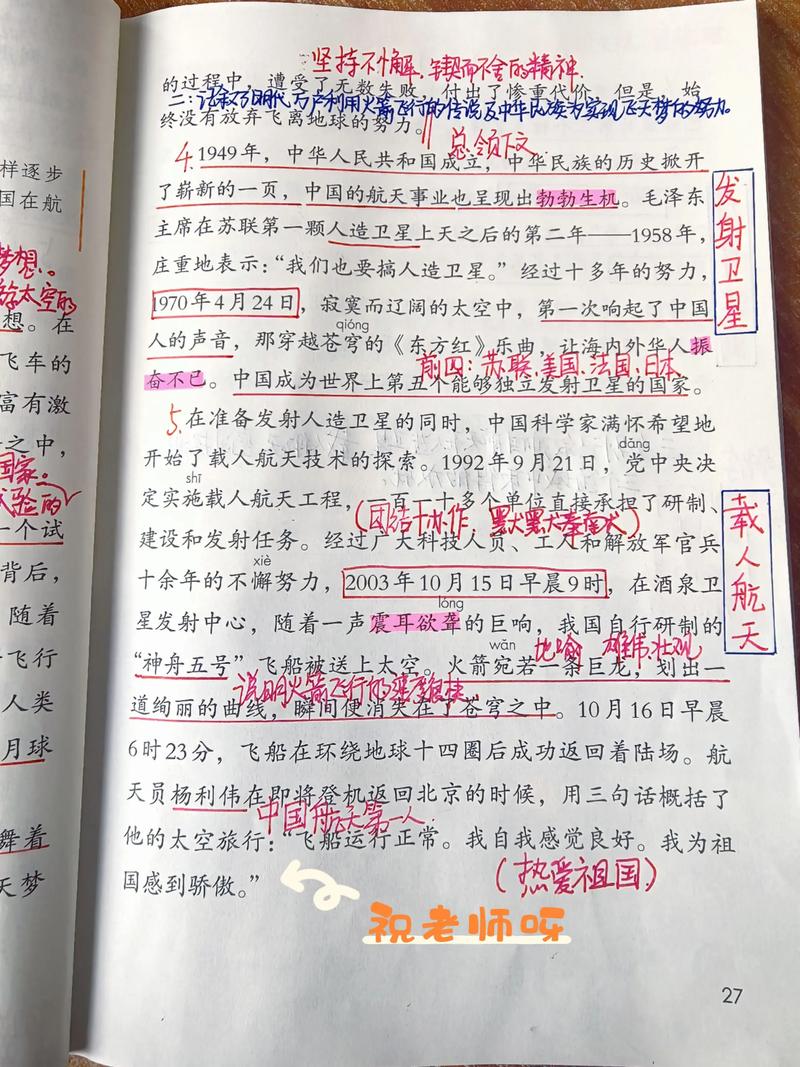 坚持不懈、锲而不舍的精神.
的过程中，遭受了无数失败，付出了惨重代价，但是，始
二：记叙了明代万户利用火箭飞行的传说及中华民族为实现飞天梦作的努力。
终没有放弃飞离地球的努力。
总领下文
4.1949年，中华人民共和国成立，中华民族的历史掀开
了崭新的一页，中国的航天事业也呈现出勃勃生机。毛泽东
主席在苏联第一颗人造卫星上天之后的第二年——1958年，
庄重地表示：“我们也要搞人造卫星。”经过十多年的努力，
1970年4月24日，寂寞而辽阔的太空中，第一次响起了中国
qióng
人的声音，那穿越苍穹的《东方红》乐曲，让海内外华人振
前四：苏联、美国、法国、日本
奋不已。中国成为世界上第五个能够独立发射卫星的国家。
发射卫星
5.在准备发射人造卫星的同时，中国科学家满怀希望地
dǎng
开始了载人航天技术的探索。1992年9月21日，党中央决
shī
定实施载人航天工程，一百一十多个单位直接承担了研制、
(团结协作、默默奉献)
建设和发射任务。经过广大科技人员、工人和解放军官兵
xiè
十余年的不懈努力，2003年10月15日早晨9时，在酒泉卫
lóng
星发射中心，随着一声震耳欲聋的巨响，我国自行研制的
wǎn
比喻 雄伟、壮观
“神舟五号”飞船被送上太空。火箭宛若一条巨龙，划出一
说明火箭飞行的速度很快
道绚丽的曲线，瞬间便消失在了苍穹之中。10月16日早晨
6时23分，飞船在环绕地球十四圈后成功返回着陆场。航
天员杨利伟在即将登机返回北京的时候，用三句话概括了
中国航天第一人.
他的太空旅行：“飞船运行正常。我自我感觉良好。我为祖
国感到骄傲。”
(热爱祖国)
载人航天
祝老师呀
27
样逐步
国在航
梦想。
太空的
想。在
飞车的
富有激
之中，
国家。
试验的
一个试
背后，
随着
飞行
人类
月球
舞着
天梦